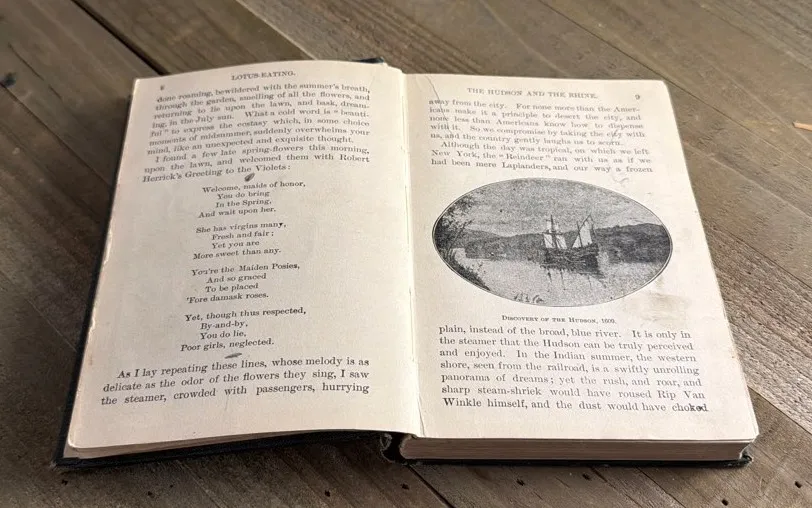 8
LOTUS-EATING.
done roaming, bewildered with the summer's breath,
through the garden, smelling of all the flowers, and
returning to lie upon the lawn, and bask, dream-
ing, in the July sun. What a cold word is "beauti-
ful" to express the ecstasy which, in some choice
moments of midsummer, suddenly overwhelms your
mind, like an unexpected and exquisite thought.
I found a few late spring-flowers this morning,
upon the lawn, and welcomed them with Robert
Herrick's Greeting to the Violets:
Welcome, maids of honor,
You do bring
In the Spring,
And wait upon her.
She has virgins many,
Fresh and fair;
Yet you are
More sweet than any.
You're the Maiden Posies,
And so graced
To be placed
'Fore damask roses.
Yet, though thus respected,
By-and-by,
You do lie,
Poor girls, neglected.
As I lay repeating these lines, whose melody is as
delicate as the odor of the flowers they sing, I saw
the steamer, crowded with passengers, hurrying
THE HUDSON AND THE RHINE.
9
away from the city. For none more than the Amer-
icans make it a principle to desert the city, and
none less than Americans know how to dispense
with it. So we compromise by taking the city with
us, and the country gently laughs us to scorn.
Although the day was tropical, on which we left
New York, the "Reindeer" ran with us as if we
had been mere Laplanders, and our way a frozen
DISCOVERY OF THE HUDSON, 1609.
plain, instead of the broad, blue river. It is only in
the steamer that the Hudson can be truly perceived
and enjoyed. In the Indian summer, the western
shore, seen from the railroad, is a swiftly unrolling
panorama of dreams; yet the rush, and roar, and
sharp steam-shriek would have roused Rip Van
Winkle himself, and the dust would have choked